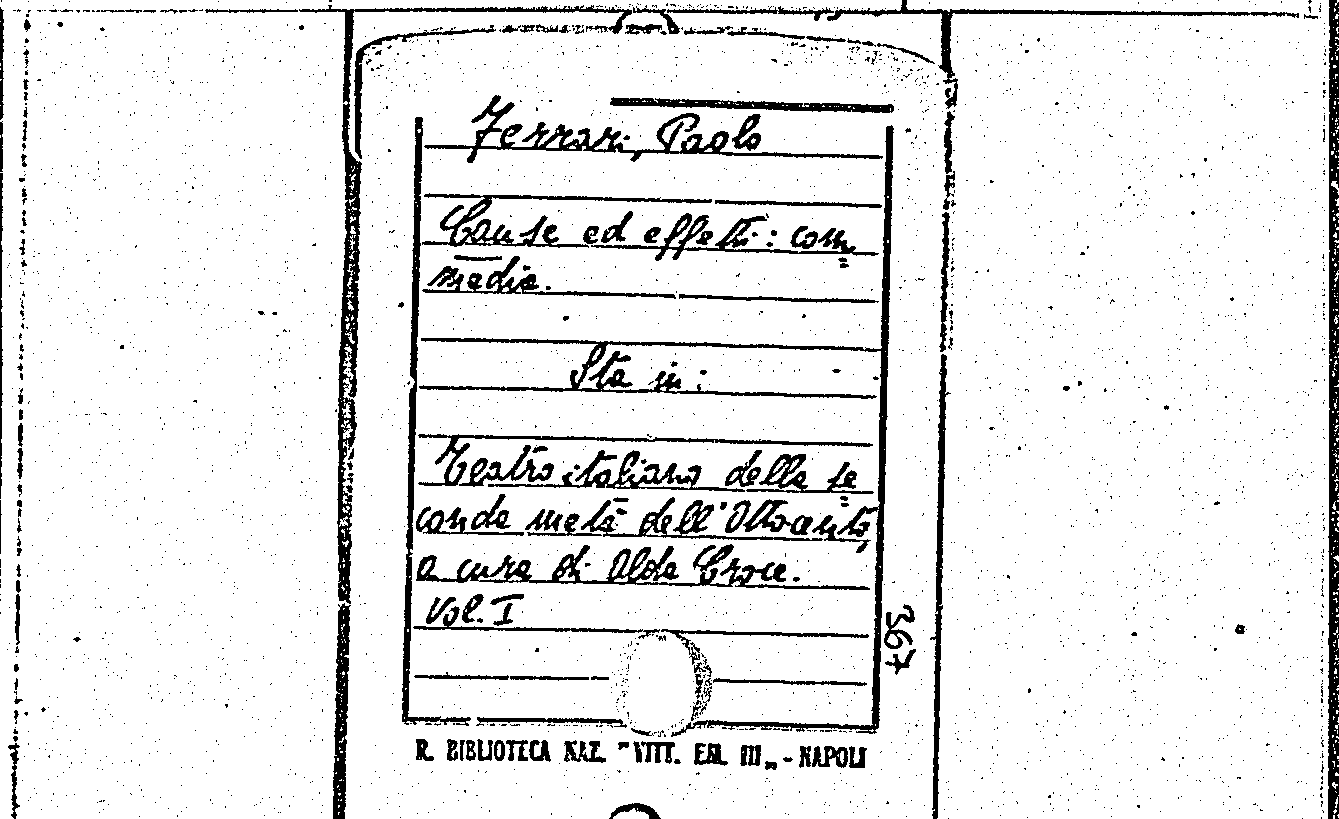 Ferrari, Paolo
Cause ed effetti: com=
media.
Sta in:
Teatro italiano della se=
conda metà dell'Ottocento,
a cura di Alda Croce.
Vol. I
367
R. BIBLIOTECA NAZ. "VITT. EM. III„ - NAPOLI